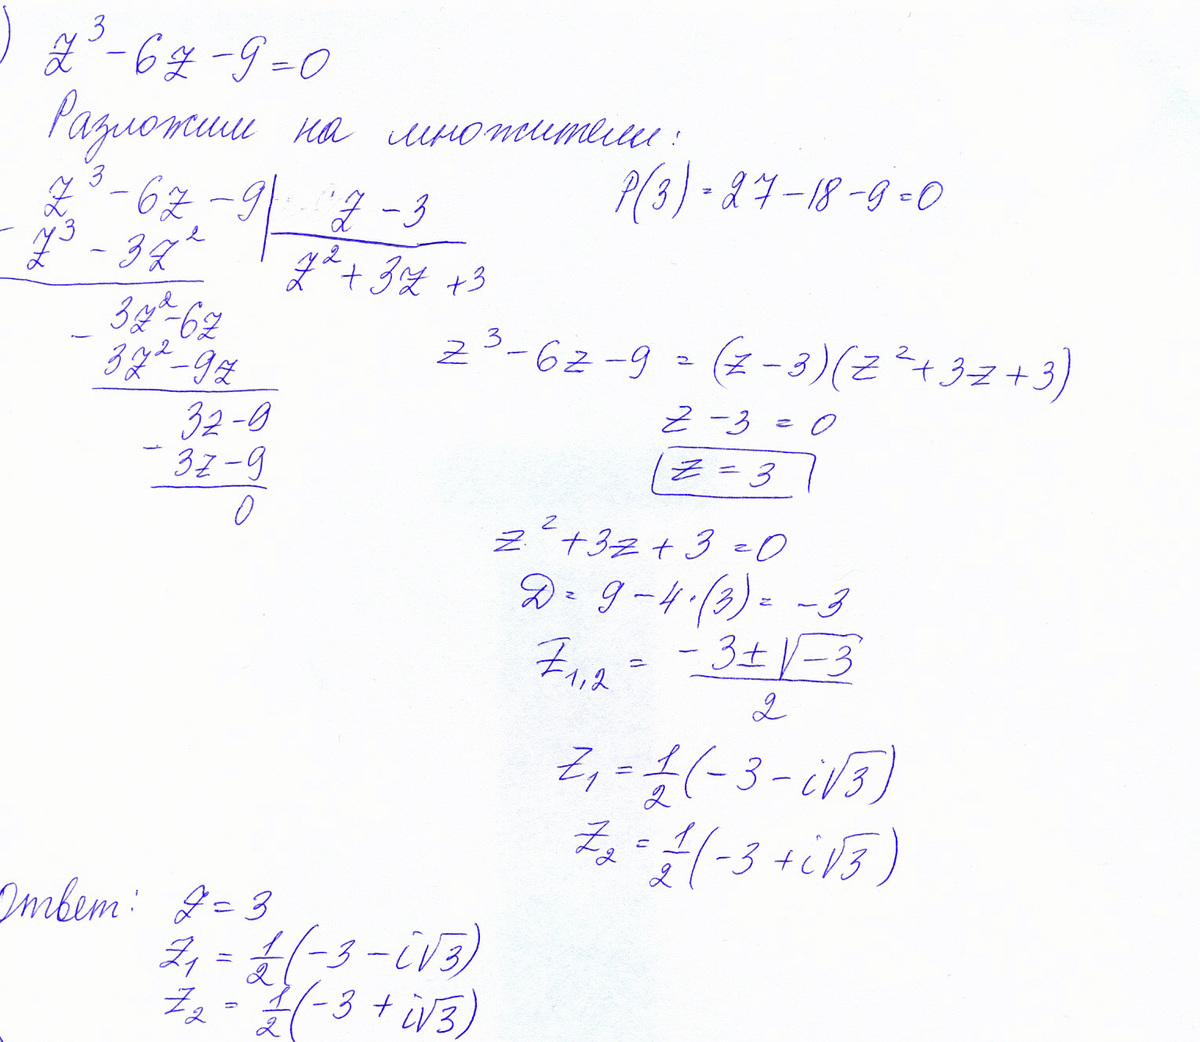 ) z³ - 6z - 9 = 0
Разложим на множители:
z³ - 6z - 9 | z - 3
P(3) = 27 - 18 - 9 = 0
- z³ - 3z² | z² + 3z + 3
3z² - 6z
- 3z² - 9z
3z - 9
- 3z - 9
0
z³ - 6z - 9 = (z - 3)(z² + 3z + 3)
z - 3 = 0
z = 3
z² + 3z + 3 = 0
D = 9 - 4·(3) = -3
z₁,₂ = (-3 ± √-3) / 2
z₁ = 1/2 (-3 - i√3)
z₂ = 1/2 (-3 + i√3)
Ответ: z = 3
z₁ = 1/2 (-3 - i√3)
z₂ = 1/2 (-3 + i√3)